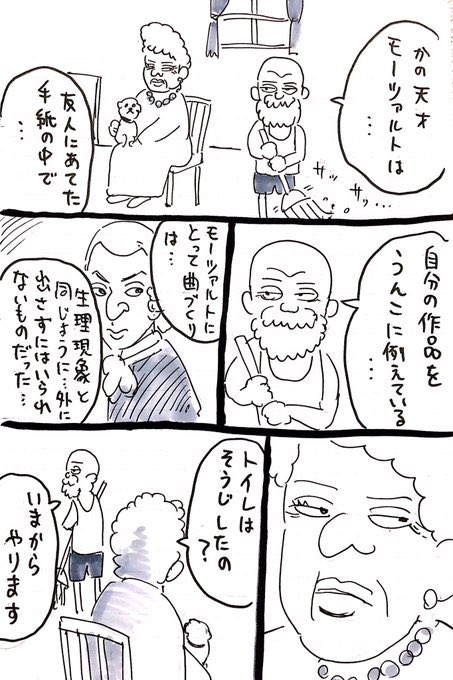 かの天才
モーツァルトは
…
サッ…
サッ…
友人にあてた
手紙の中で
…
自分の作品を
うんこに例えている
…
モーツァルトに
とって曲づくり
は…
生理現象と
同じように…外に
出さずにはいられ
ないものだった…
トイレは
そうじしたの
?
いまから
やります